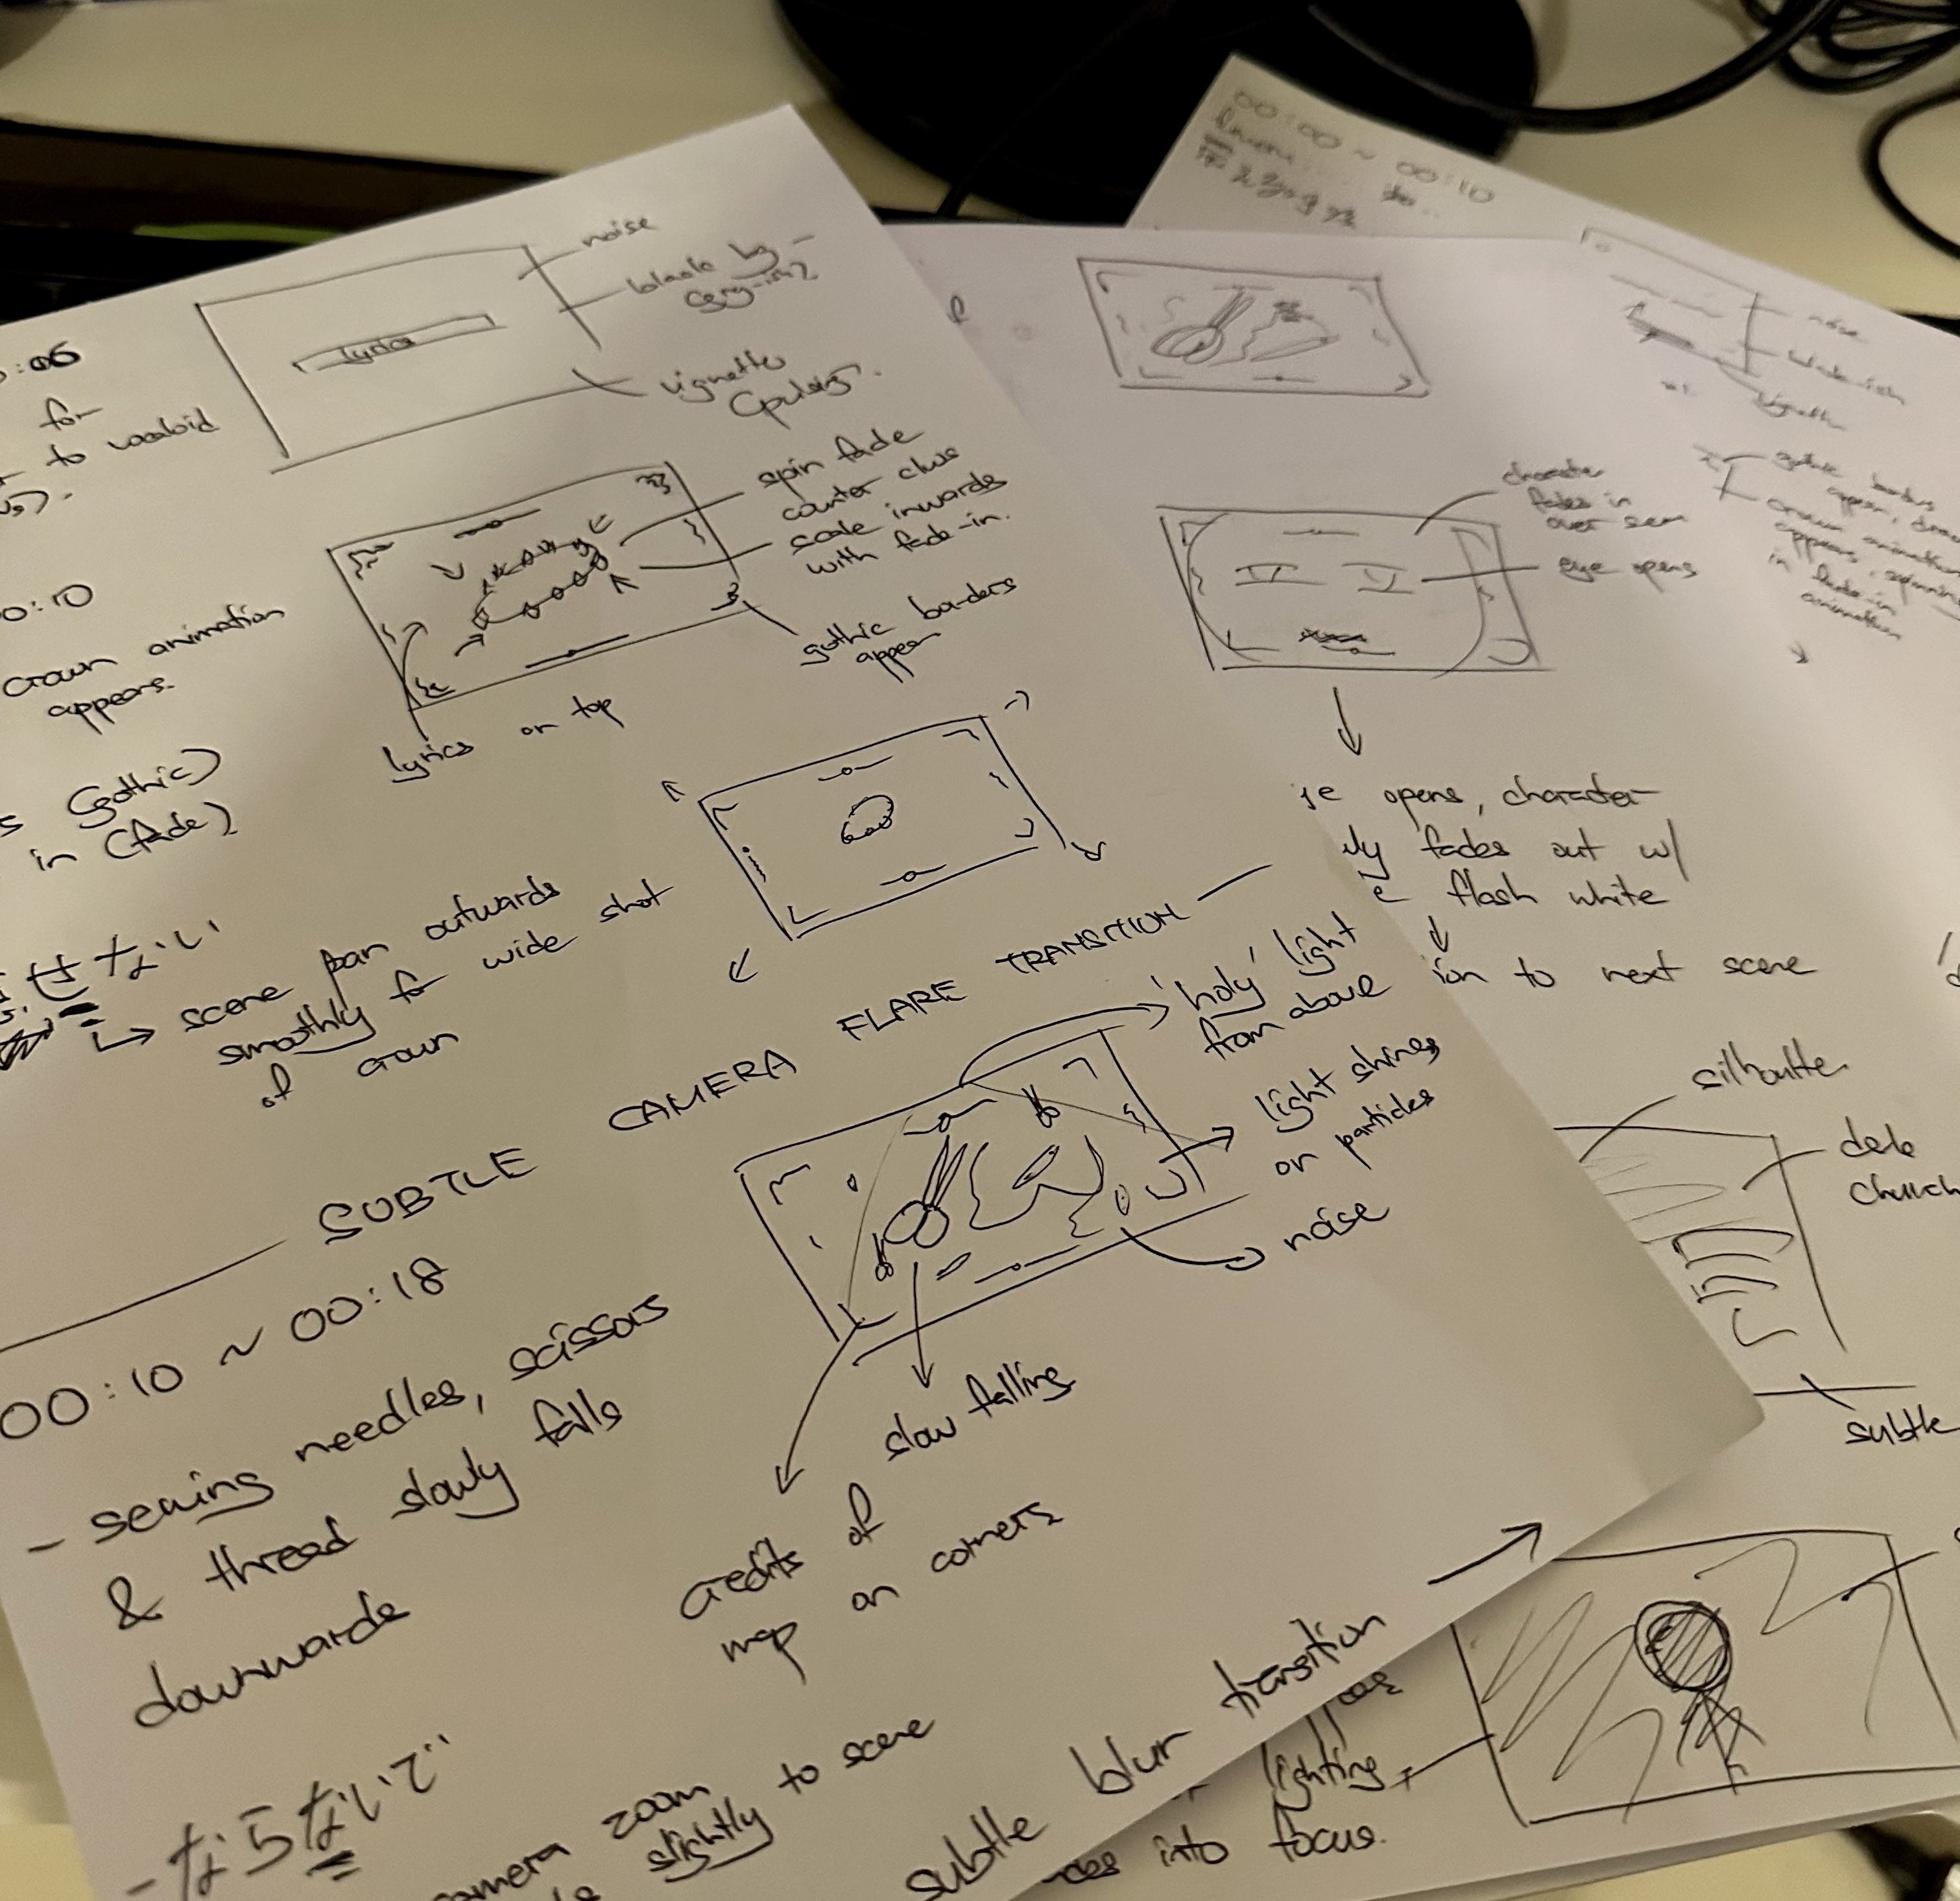 noise
vignette
:06
for
to
lyrics
spin fade
counter
scale inwards
with fade-in.
gothic borders
appear
0:10
crown animation
appears.
lyrics on top
(Gothic)
in (fade)
せない
scene pan outwards
smoothly for wide shot
of crown
SUBTLE CAMERA FLARE TRANSITION
'holy' light
from above
light shines
on particles
noise
00:10 ~ 00:18
- sewing needles, scissors
& thread slowly falls
downwards
slow falling
credits of
map on corners
-ならないで"
camera zoom
slightly to scene
subtle blur transition
00:00 ~ 00:10
noise
character
fades in
over
eye opens
gothic borders
appear,
crown animation
appears, spinning
in fade-in
animation
opens, character
fades out w/
flash white
to next scene
silhoutte
church
subtle
lighting
into focus.